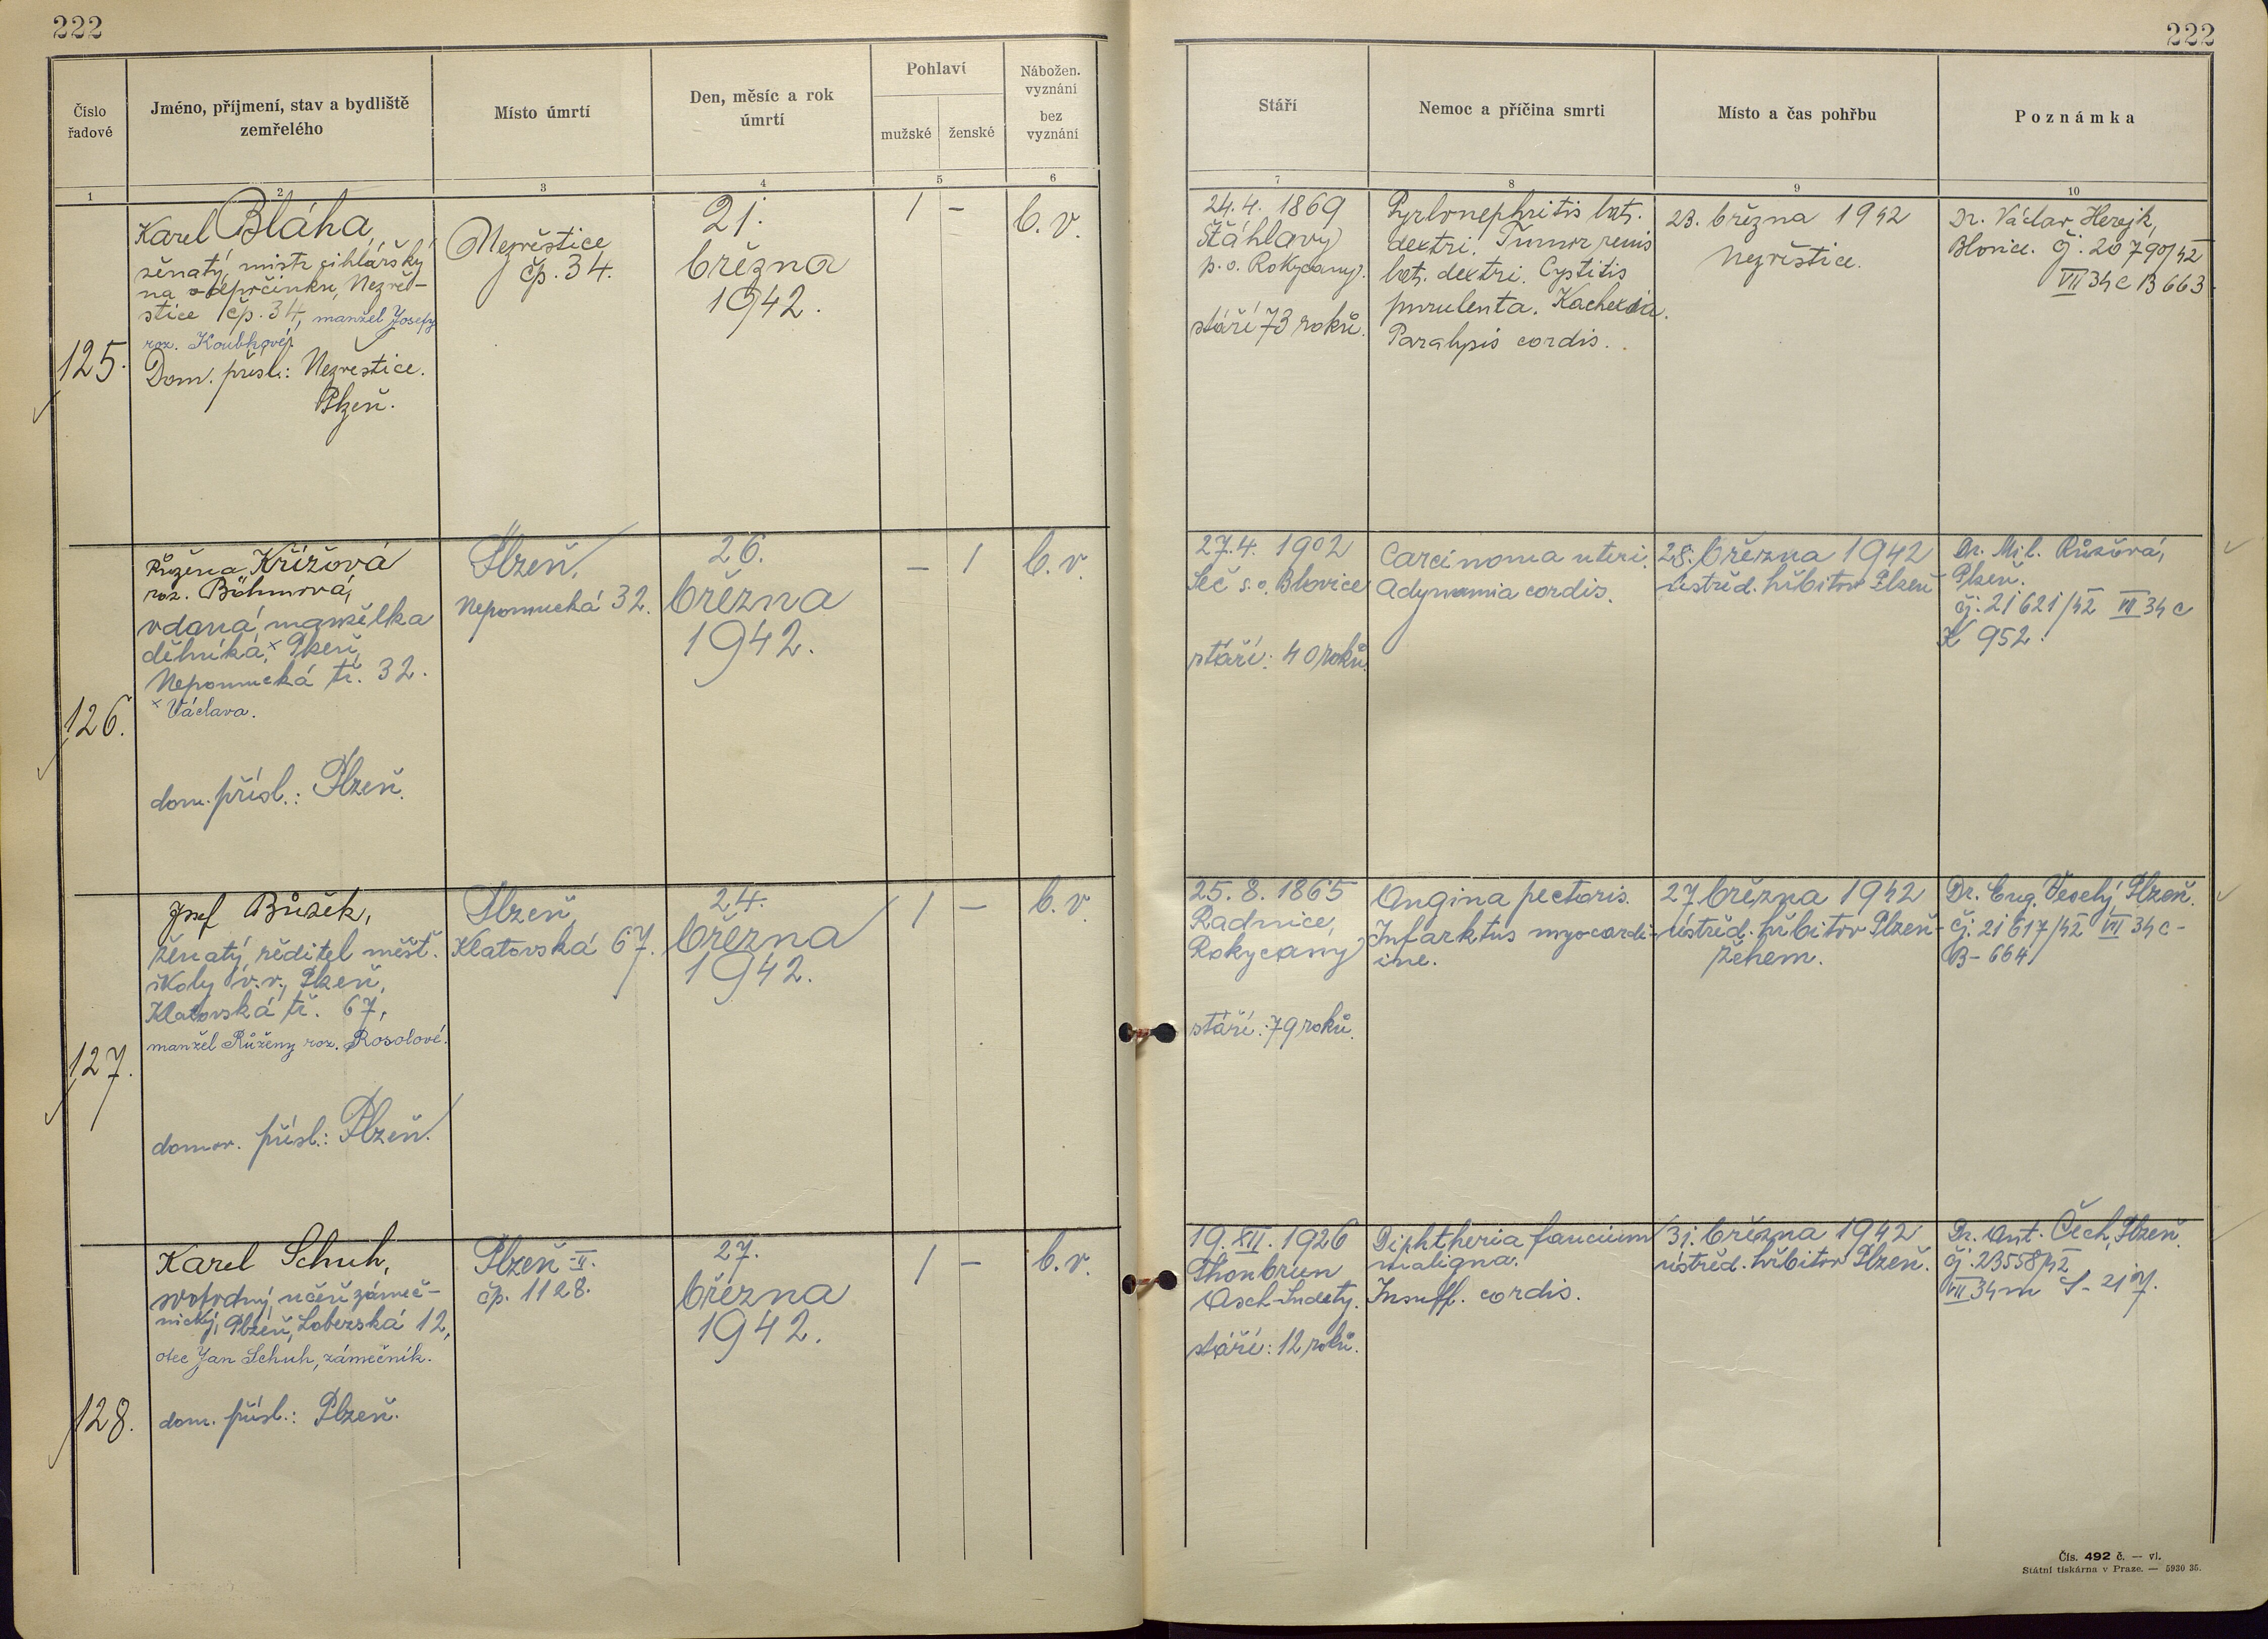 222
222
Číslo řadové
Jméno, příjmení, stav a bydliště zemřelého
Místo úmrtí
Den, měsíc a rok úmrtí
Pohlaví
mužské
ženské
Nábožen. vyznání
bez vyznání
Stáří
Nemoc a příčina smrti
Místo a čas pohřbu
Poznámka
1
2
3
4
5
6
7
8
9
10
125.
Karel Bláha,
ženatý, mistr cihlářský
na odpočinku, Nezvě-
stice čp. 34, manžel Josefy
roz. Koubkové.
Dom. přísl.: Nezvěstice.
Plzeň.
Nezvěstice
čp. 34.
21.
března
1942.
1
–
b. v.
24. 4. 1869
Štáhlavy
p. o. Rokycany.
stáří 73 roků.
Pyelonephritis lat.
dextri. Tumor renis
lat. dextri. Cystitis
purulenta. Kachexia.
Paralysis cordis.
23. března 1942
Nezvěstice.
Dr. Václav
Blovice. čj. 20790/42
VII 34c B 663
126.
Růžena Křížová
roz. Böhmová,
vdaná, manželka
dělníka,ˣ Plzeň,
Nepomucká tř. 32.
ˣ Václava.
dom. přísl.: Plzeň.
Plzeň,
Nepomucká 32.
26.
března
1942.
–
1
b. v.
27. 4. 1902
Seč s. o. Blovice
stáří: 40 roků.
Carcinoma uteri.
Adynamia cordis.
28. března 1942
ústřed. hřbitov Plzeň
Dr. Mil. Růžová,
Plzeň.
čj. 21621/42 VII 34c
K 952.
127.
Josef Bůžek,
ženatý, ředitel měšť.
školy v. v., Plzeň,
Klatovská tř. 67,
manžel Růženy roz. Rosolové.
domov. přísl.: Plzeň.
Plzeň,
Klatovská 67.
24.
března
1942.
1
–
b. v.
25. 8. 1865
Radnice,
Rokycany
stáří: 79 roků.
Angina pectoris.
Infarktus myocardi-
ine.
27. března 1942
ústřed. hřbitov Plzeň-
žehem.
Dr. Eug. Veselý, Plzeň.
čj. 21617/42 VII 34c-
B-664
128.
Karel Schuh,
svobodný, učeň zámeč-
nický, Plzeň, Lobezská 12,
otec Jan Schuh, zámečník.
dom. přísl.: Plzeň.
Plzeň-II.
čp. 1128.
27.
března
1942.
1
–
b. v.
19. XII. 1926
Thonbrun
Asch-Sudety.
stáří: 12 roků.
Diphtheria faucium
maligna.
Insuff. cordis.
31. března 1942
ústřed. hřbitov Plzeň.
Dr. Ant. Čech, Plzeň
čj. 23558/42
VII 34m
Čís. 492 č. — vl.
Státní tiskárna v Praze. — 5930 35.